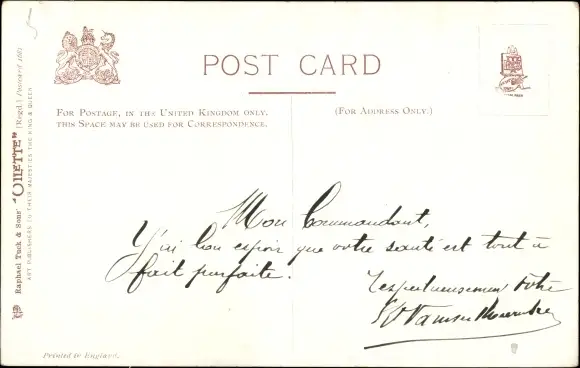 POST CARD
FOR POSTAGE, IN THE UNITED KINGDOM ONLY,
THIS SPACE MAY BE USED FOR CORRESPONDENCE.
(FOR ADDRESS ONLY.)
Raphael Tuck & Sons' "OILETTE" [Regd.] Postcard
ART PUBLISHERS TO THEIR MAJESTIES THE KING & QUEEN
Mon Commandant,
J'ai bon espoir que votre santé est tout à
fait parfaite.
respectueusement votre
Printed in England.